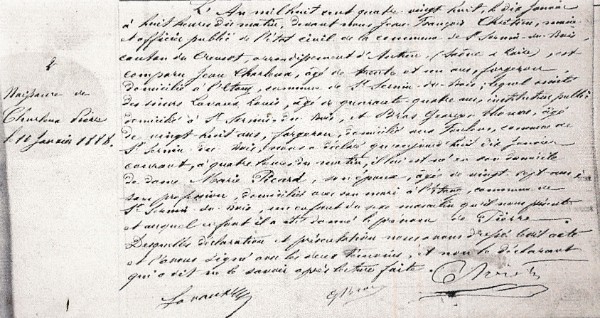 4
Naissance de
Charleux Pierre
le 10 Janvier 1888.
L'An mil huit cent quatre vingt huit, le dix Janvier
à huit heures du matin, devant nous Jean François Chrétien, maire
et officier public de l'état civil de la commune de St Sernin-du-Bois,
canton du Creusot, arrondissement d'Autun (Saône & Loire) est
comparu Jean Charleux, âgé de trente et un ans, forgeron
domicilié à l'Etang, commune de St Sernin-du-Bois; lequel assisté
des sieurs Lavaux Louis, âgé de quarante quatre ans, instituteur public
domicilié à St Sernin-du-Bois, et âgé
de vingt huit ans, forgeron, domicilié aux commune de
St Sernin-du-Bois, nous a déclaré qu'aujourd'hui dix Janvier
courant, à quatre heures du matin, il lui est né en son domicile
de dame Marie Picard, son épouse, âgée de vingt sept ans,
son profession, domiciliée avec son mari à l'Etang, commune de
St Sernin-du-Bois, un enfant du sexe masculin qu'il nous présente
et auquel enfant il a dit donner le prénom de Pierre.
Desquelles déclaration et présentation nous avons dressé le présent acte
et l'avons signé avec les deux témoins, et non le déclarant
qui a dit ne le savoir après lecture faite.
Lavaux